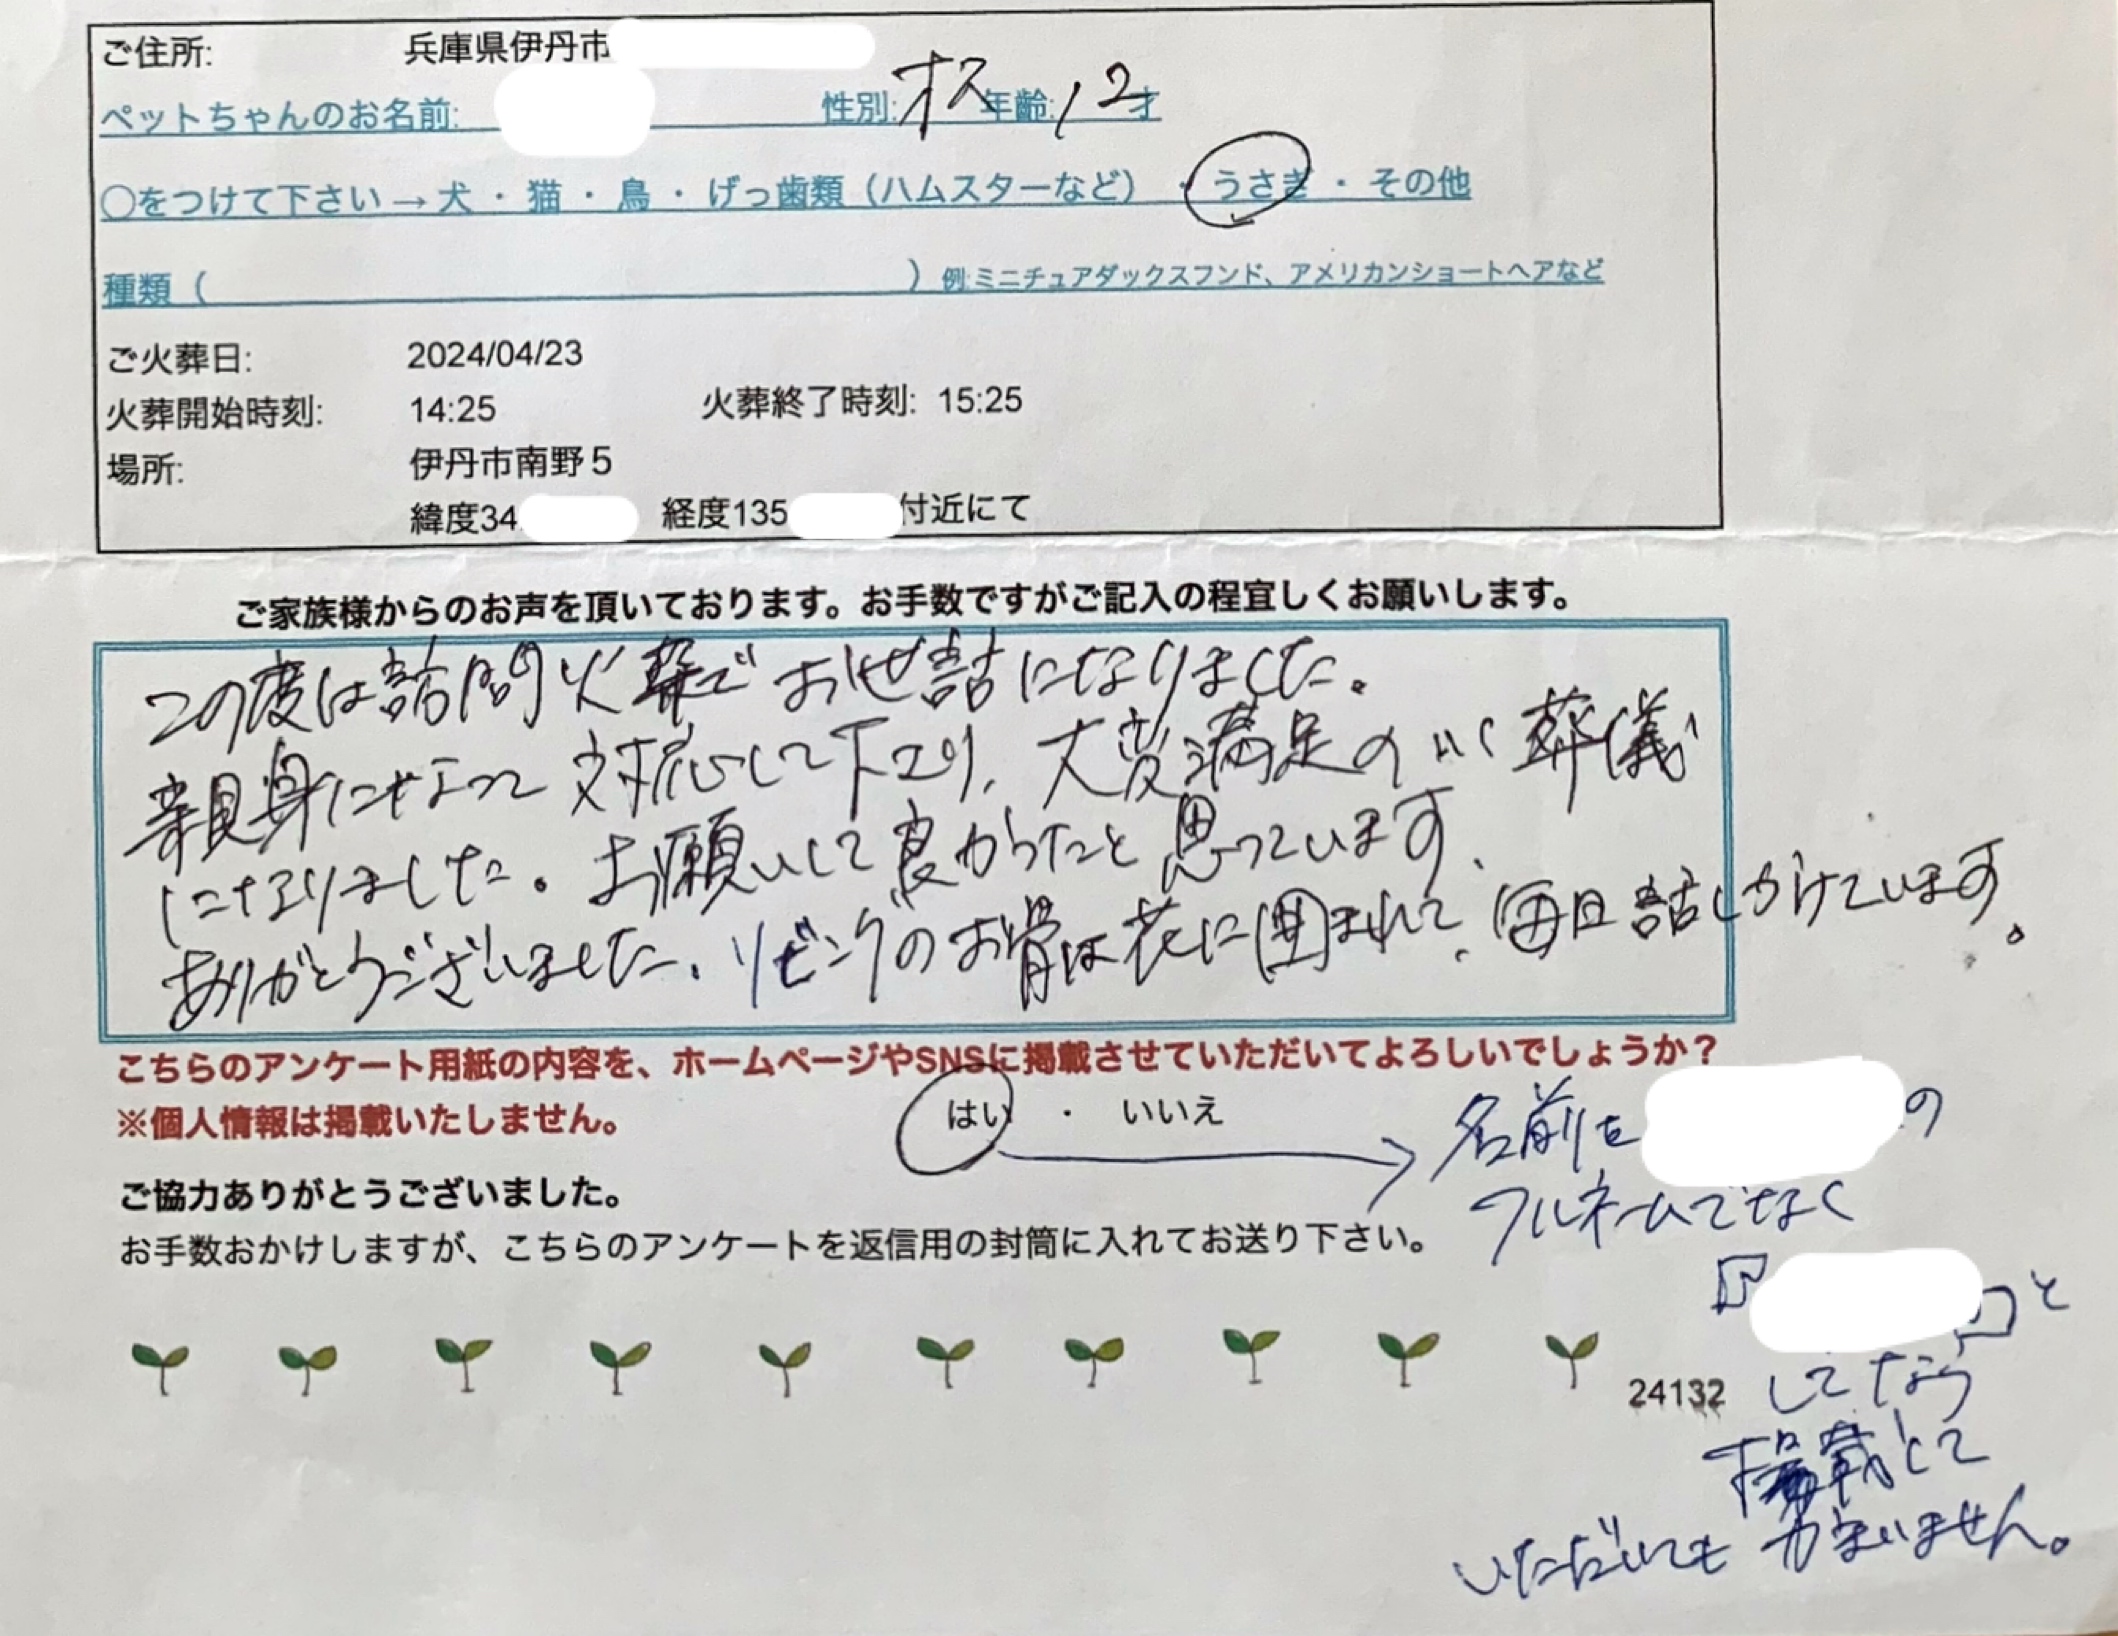 ご住所: 兵庫県伊丹市
ペットちゃんのお名前: 性別: オス 年齢: 12才
○をつけて下さい→犬・猫・鳥・げっ歯類（ハムスターなど）・うさぎ・その他
種類（ ）例:ミニチュアダックスフンド、アメリカンショートヘアなど
ご火葬日: 2024/04/23
火葬開始時刻: 14:25 火葬終了時刻: 15:25
場所: 伊丹市南野5
緯度34. 経度135 付近にて
ご家族様からのお声を頂いております。お手数ですがご記入の程宜しくお願いします。
この度は訪問火葬でお世話になりました。
親身になって対応して下さり、大変満足のいく葬儀
になりました。お願いして良かったと思っています。
ありがとうございました。リビングのお骨は花に囲まれて、毎日話しかけています。
こちらのアンケート用紙の内容を、ホームページやSNSに掲載させていただいてよろしいでしょうか？
※個人情報は掲載いたしません。
はい ・ いいえ
名前を の
フルネームでなく
『 』と
してなら
掲載して
いただいても かまいません。
ご協力ありがとうございました。
お手数おかけしますが、こちらのアンケートを返信用の封筒に入れてお送り下さい。
24132